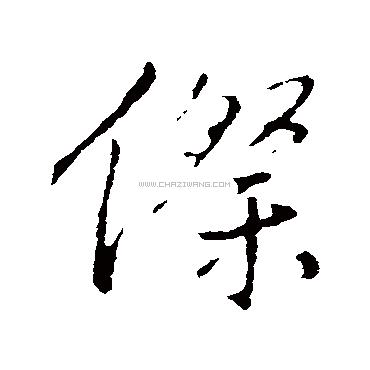 傑
WWW.CHAZIWANG.COM